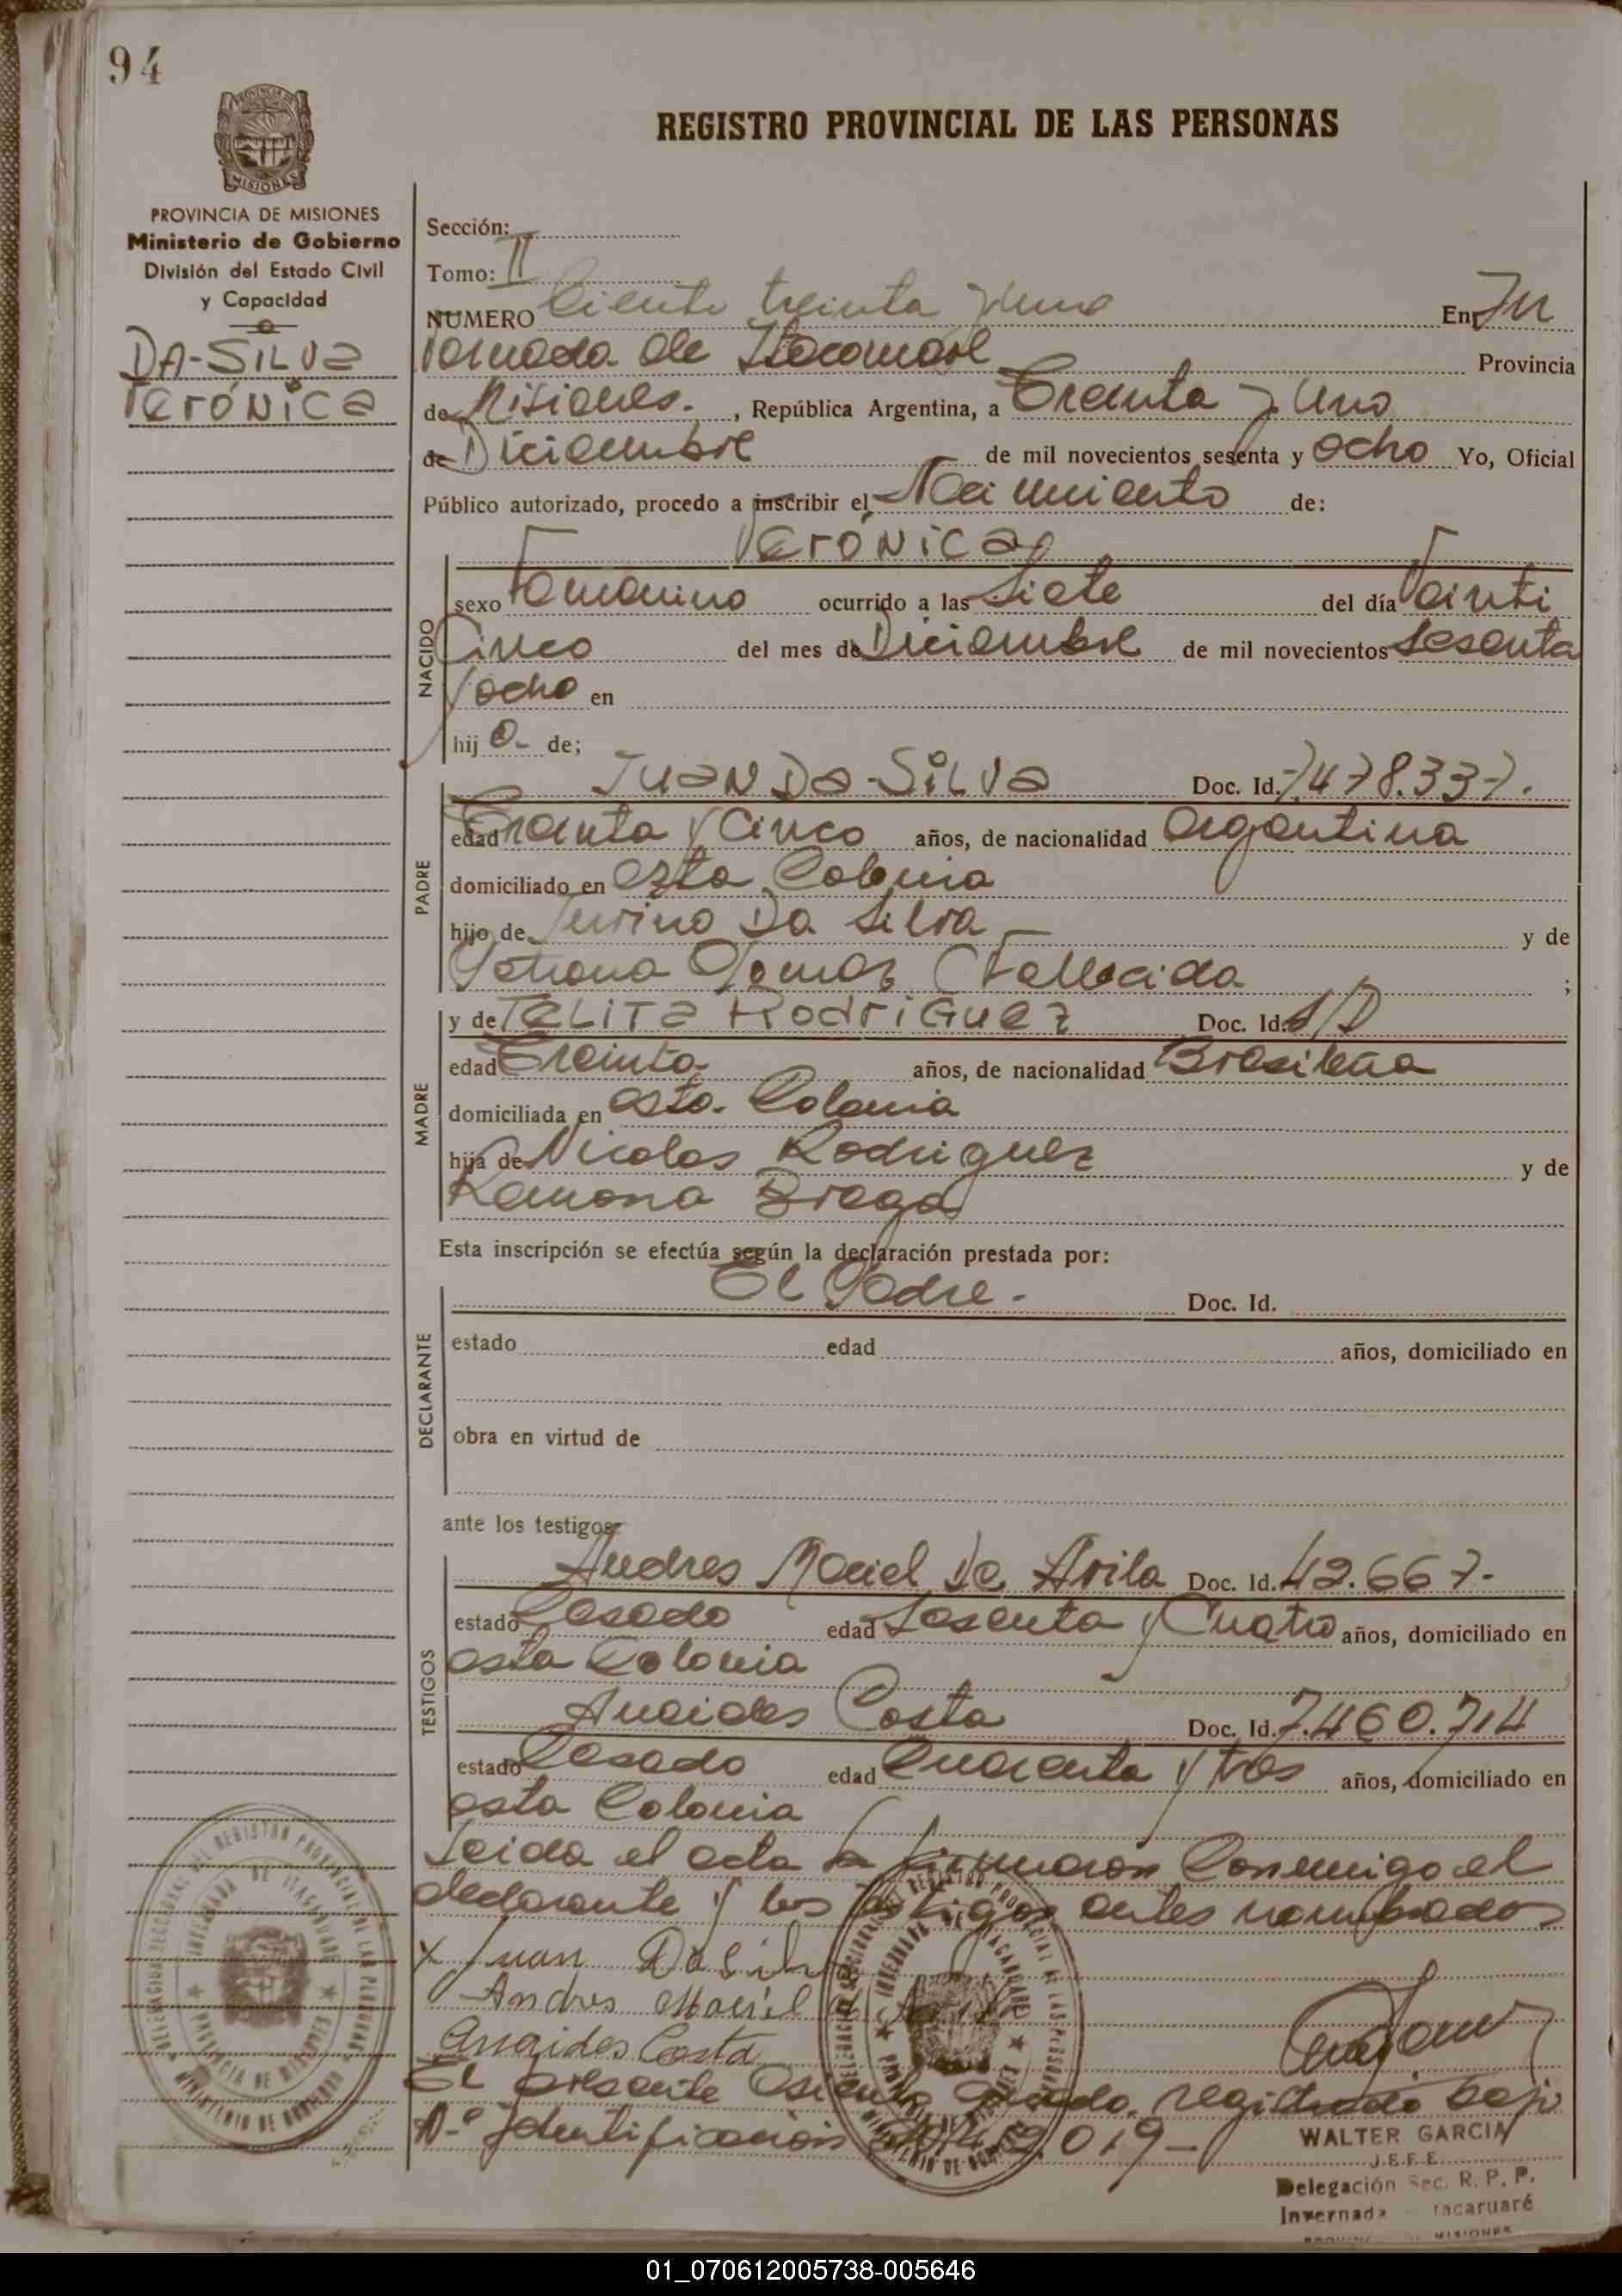 94
PROVINCIA DE MISIONES
REGISTRO PROVINCIAL DE LAS PERSONAS
PROVINCIA DE MISIONES
Ministerio de Gobierno
División del Estado Civil
y Capacidad
DA-SILVA
VERÓNICA
Sección:
Tomo: II
NUMERO Ciento treinta y uno En In
vernada de Itacaruaré Provincia
de Misiones. , República Argentina, a Treinta y Uno
de Diciembre de mil novecientos sesenta y ocho Yo, Oficial
Público autorizado, procedo a inscribir el Nacimiento de:
VERÓNICA
NACIDO
sexo Femenino ocurrido a las Siete del día Veinti
Cinco del mes de Diciembre de mil novecientos sesenta
y ocho en
hij a de;
PADRE
JUAN DA-SILVA Doc. Id. 7.478.337.
edad Treinta y Cinco años, de nacionalidad Argentina
domiciliado en esta Colonia
hijo de Da Silva y de
Fallecida ;
MADRE
y de TELITA RODRIGUEZ Doc. Id. S/D
edad Treinta años, de nacionalidad Brasileña
domiciliada en esta Colonia
hija de Nicolas Rodriguez y de
Ramona Braga
Esta inscripción se efectúa según la declaración prestada por:
DECLARANTE
El Padre.- Doc. Id.
estado edad años, domiciliado en
obra en virtud de
ante los testigos:
TESTIGOS
Andres Maciel De Avila Doc. Id. 42.667.-
estado Casado edad Sesenta y Cuatro años, domiciliado en
esta Colonia
Anaides Costa Doc. Id. 7.460.714
estado Casado edad Cuarenta y tres años, domiciliado en
esta Colonia
Leida el acta la firmaron Conmigo el
declarante y los testigos antes nombrados
x Juan Da Silva
Andres Maciel
Anaides Costa
El presente Asiento Queda registrado bajo
N.º identificación
WALTER GARCIA
JEFE
Delegación Sec. R. P. P.
Invernada Itacaruaré
PROVINCIA DE MISIONES
DELEGACION SECCIONAL DEL REGISTRO PROVINCIAL DE LAS PERSONAS
INVERNADA DE ITACARUARE
PROVINCIA DE MISIONES
MINISTERIO DE GOBIERNO
01_070612005738-005646